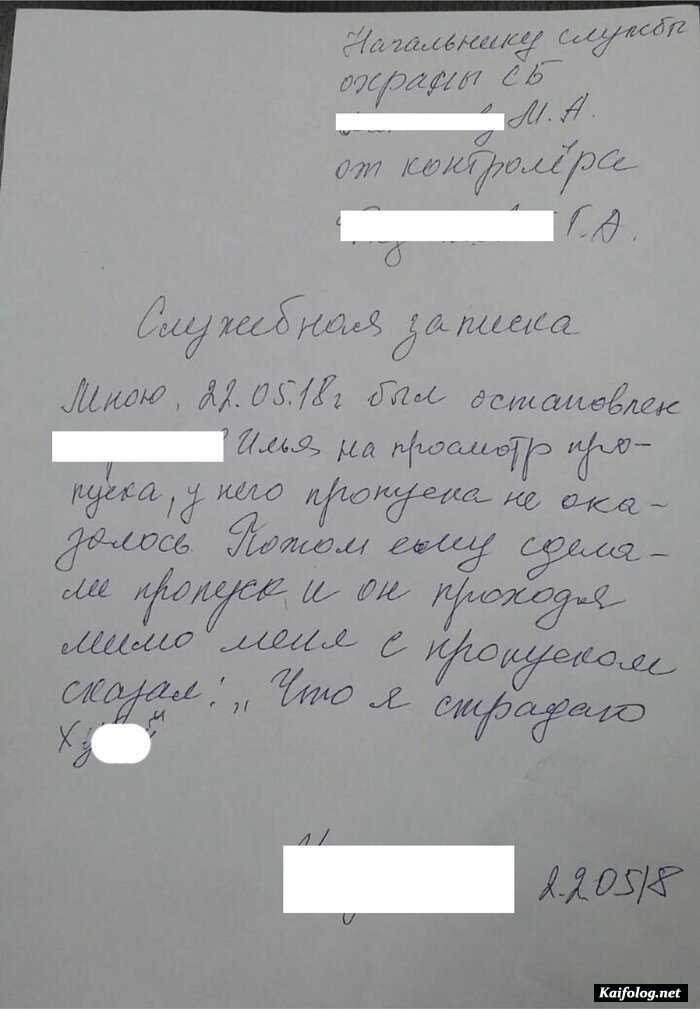 Начальнику службы
охраны СБ
М. А.
от контролёра
Г. А.
Служебная записка
Мною, 22.05.18г был остановлен
Илья на просмотр про-
пуска, у него пропуска не ока-
залось. Потом ему сдела-
ли пропуск и он проходя
мимо меня с пропуском
сказал: „Что я страдаю
22.05.18
Kaifolog.net